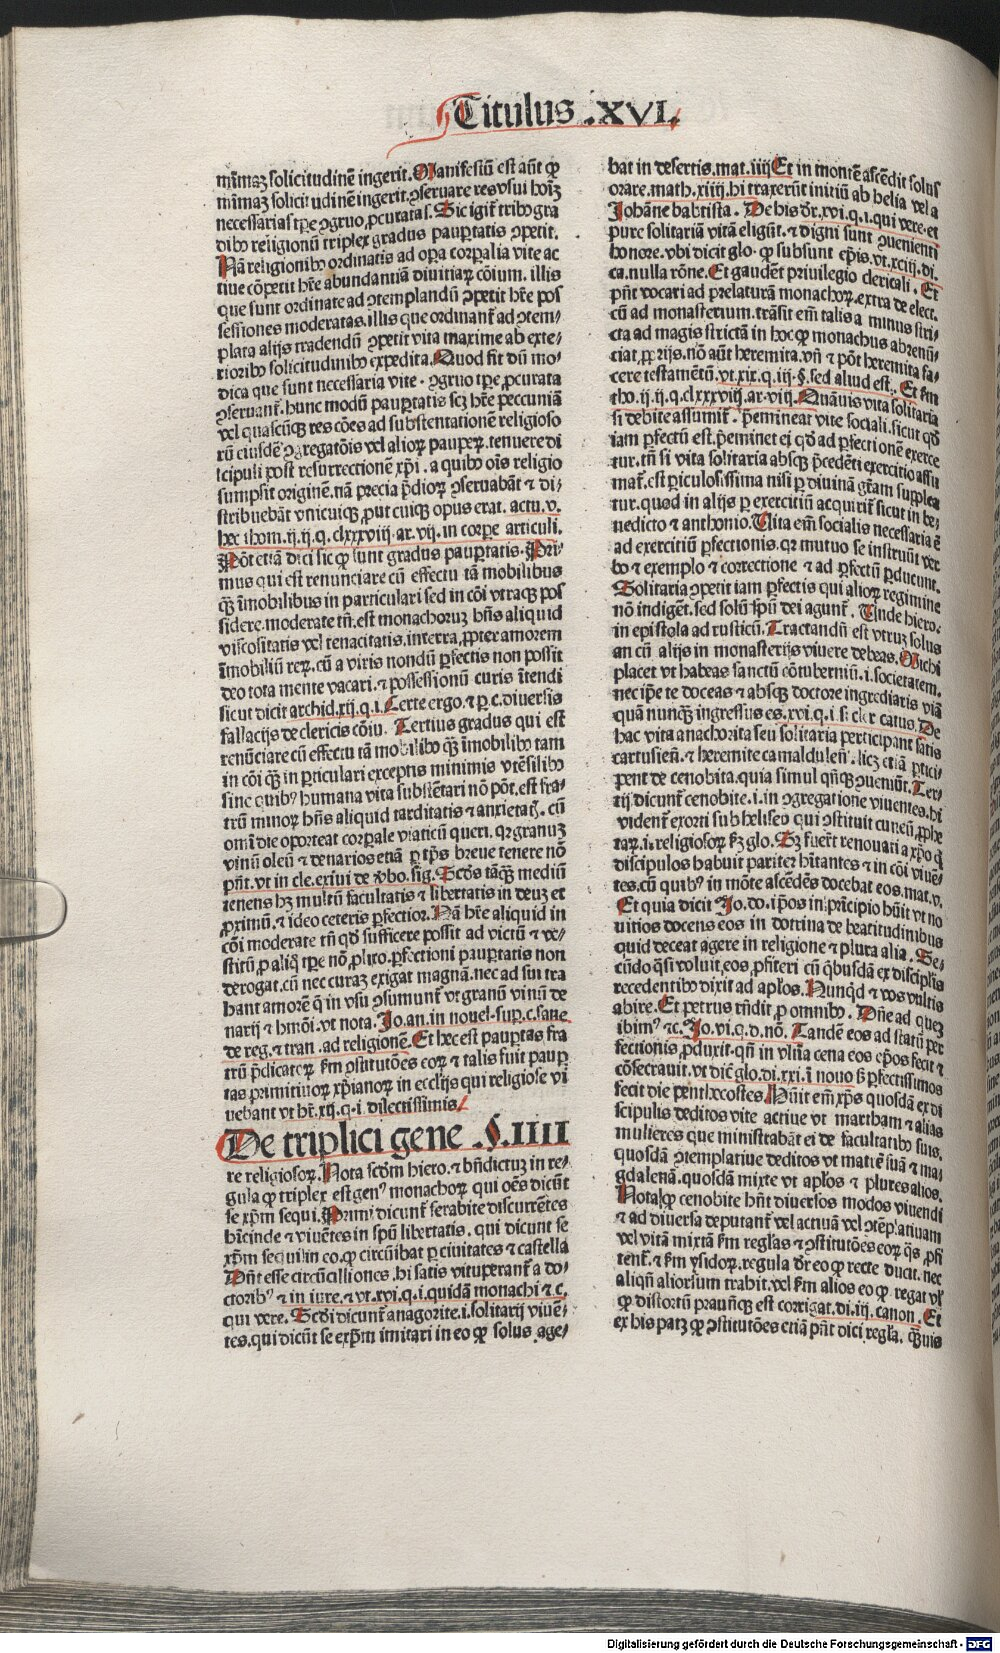 Titulus .XVI.
mimaꝫ solicitudinē ingerit. Manifestū est aūt ꝙ
mimaꝫ solicitudinem ingerit. ꝯseruare res vsui hoīꝫ
necessarias tp̄e ꝯgruo ꝓcuratas. Sic igit̄ tribꝰ gra
dibꝰ religionū triplex gradus paup̄tatis ꝯpetit.
Nā religionibꝰ ordinatis ad oꝑa corꝑalia vite ac
tiue cōpetit hr̄e abundantiā diuitiaꝝ cōium. illis
que sunt ordinate ad ꝯtemplandū ꝯpetit hr̄e pos
sessiones moderatas. illis que ordinant̄ ad ꝯtem⸗
plata alijs tradendū ꝯpetit vita maxime ab exte⸗
rioribꝰ solicitudinibꝰ expedita. Quod fit dū mo⸗
dica que sunt necessaria vite . ꝯgruo tp̄e ꝓcurata
ꝯseruant̄. hunc modū paup̄tatis scꝫ hr̄e peccuniā
vel quascūqꝫ res cōes ad substentationē religioso
rū eiusdē ꝯgregatōis vel alioꝝ pauꝑeꝝ. tenuere di
scipuli post resurrectionē xp̄i . a quibꝰ oīs religio
sumpsit originē. nā precia p̄dioꝝ ꝯseruabāt ⁊ di⸗
stribuebāt vnicuiqꝫ ꝓut cuiqꝫ opus erat. actu. v.
hec thom. ij. ij. q. clxxxviij. ar. vij. in corꝑe articuli.
Pōt etiā dici sic ꝙ sunt gradus paup̄tatis. Pri⸗
mus qui est renunciare cū effectu tā mobilibus
qꝫ̄ īmobilibus in particulari sed in cōi vtraqꝫ pos
sidere. moderate tn̄. est monachoruꝫ hn̄s aliquid
viscositatis vel tenacitatis. in terra. ꝓpter amorem
īmobiliū reꝝ. cū a viris nondū ꝑfectis non possit
deo tota mente vacari. ⁊ possessionū curis ītendi
sicut dicit archid. xij. q. i. Certe ergo. ⁊ ꝑ. c. diuersis
fallacijs de clericis cōiu. Tertius gradus qui est
renūciare cū effectu tā mobilibꝰ qꝫ̄ īmobilibꝰ tam
in cōi qꝫ̄ in ꝑticulari exceptis minimis vtēsilibꝰ
sine quibꝰ humana vita substētari nō pōt. est fra⸗
trū minoꝝ hn̄s aliquid tarditatis ⁊ anxietatꝭ. cū
omī die oporteat corꝑale viaticū queri. qꝛ granuꝫ
vinū oleū ⁊ denarios etiā ꝑ tp̄s breue tenere nō
pn̄t. vt in cle. exiui de vbo. sig. Scd̄s tāqꝫ mediū
tenens hꝫ multū facultatis ⁊ libertatis in deuꝫ et
ꝓrimū. ⁊ ideo ceteris ꝑfectior. Nā hr̄e aliquid in
cōi moderate tn̄ qd̄ sufficere possit ad victū ⁊ ve⸗
stitū ꝓ aliq̄ tp̄e nō ꝓlixo. ꝑfectioni paup̄tatis non
derogat. cū nec curaꝫ exigat magnā. nec ad sui tra
hant amorē q̄ in vsu ꝯsumunt̄ vt granū vinū de
narij ⁊ hmōi. vt nota. Jo. an. in nouel. sup. c. sane
de reg. ⁊ tran. ad religionē. Et hec est paup̄tas fra
trū p̄dicatoꝝ ẜm ꝯstitutōes eoꝝ ⁊ talis fuit pauꝑ
tas primitiuoꝝ xp̄ianoꝝ in ecclijs qui religiose vi
uebant vt hr̄. xij. q. i. dilectissimis.
De triplici gene .§. IIII
re religiosoꝝ. Nota scd̄m hiero. ⁊ bn̄dictuꝫ in re⸗
gula ꝙ triplex est genꝰ monachoꝝ qui oēs dicūt
se xp̄m sequi. Primi dicunt̄ serabite discurrētes
hīcinde ⁊ viuētes in spū libertatis. qui dicunt se
xp̄m sequi in eo. ꝙ circūibat ꝑ ciuitates ⁊ castella
Pn̄t esse circūcilliones. hi satis vituperant̄ a do⸗
ctoribꝰ ⁊ in iure. ⁊ vt. xvi. q. i. quidā monachi ⁊ c.
qui vere. Scd̄i dicunt̄ anagorite. i. solitarij viuē⸗
tes. qui dicūt se exp̄m imitari in eo ꝙ solus age⸗
bat in desertis. mat. iiij Et in montē ascēdit solus
orare. math. xiiij. hi traxerūt initiū ab helia vel a
Johāne babtista . De his dr̄. xvi. q. i. qui vere. et
pure solitariā vitā eligūt. ⁊ digni sunt ꝯuenienti
honore. vbi dicit glo. ꝙ subsunt ep̄is. vt. xciij. di.
ca. nulla rōne. Et gaudēt priuilegio clericali . Et
pn̄t vocari ad prelaturā monachoꝝ. extra de elect.
cū ad monasterium. trāsit em̄ talis a minus stri⸗
cta ad magis strictā in hoc ꝙ monachus abrenū⸗
ciat ꝓprijs. nō aūt heremita. vn̄ ⁊ pōt heremita fa⸗
cere testamētū. vt. xix. q. iij. §. sed aliud est . Et ẜm
tho. ij. ij. q. clxxxviij. ar. viij. Quāuis vita solitaria
si debite assumit̄ . p̄emineat vite sociali. sicut qd̄
iam ꝑfectū est. p̄eminet ei qd̄ ad ꝑfectionē exerce
tur. tn̄ si vita solitaria absqꝫ p̄cedēti exercitio assu
mat̄. est ꝑiculosissima nisi ꝑ diuinā gr̄am supplea
tur. quod in alijs ꝑ exercitiū acquirit̄ sicut in be⸗
nedicto ⁊ anthonio. Vita em̄ socialis necessaria ē
ad exercitiū ꝑfectionis. qꝛ mutuo se instruūt ver
bo ⁊ exemplo ⁊ correctione ⁊ ad ꝑfectū ꝑducunt.
Solitaria ꝯpetit iam ꝑfectis qui alioꝝ regimine
nō indigēt. sed solū spū dei agunt̄ . Vnde hiero.
in epistola ad rusticū. Tractandū est vtruꝫ solus
an cū alijs in monasterijs viuere debeas. Michi
placet vt habeas sanctū cōtuberniū. i. societatem.
nec ip̄e te doceas ⁊ absqꝫ doctore ingrediaris viā
quā nunqꝫ̄ ingressus es. xvi. q. i. si cler catus. De
hac vita anachorita seu solitaria participant satis
cartusien̄. ⁊ heremite camaldulen̄ . licꝫ etiā ꝑtici⸗
pent de cenobita. quia simul qn̄qꝫ ꝯueniūt. Ter⸗
tij dicunt̄ cenobite. i. in ꝯgregatione viuentes. hi
vident̄ exorti sub heliseo qui ꝯstituit cuneū ꝓphe
taꝝ. i. religiosoꝝ ẜꝫ glo. Sꝫ fuer̄t renouati a xp̄o q̄
discipulos habuit pariter hītantes ⁊ in cōi viuē⸗
tes. cū quibꝰ in mōte ascēdēs docebat eos. mat. v.
Et quia dicit Jo. do. ip̄os in p̄ncipio hūit vt no
uitios docens eos in dottrina de beatitudinibus
quid deceat agere in religione ⁊ plura alia . Se⸗
cūdo qs̄i voluit. eos ꝓfiteri cū qbusdā ex discipl̄is
recedentibꝰ dixit ad apl̄os. Nunqd ⁊ vos vultis
abire. Et petrus rn̄dit ꝓ omnibꝰ . Dn̄e ad queꝫ
ibimꝰ ⁊c. Jo. vi. q. d. nō. Tandē eos ad statū ꝑer
fectionis ꝓduxit. qn̄ in vltīa cena eos ep̄os fecit ⁊
cōsecrauit. vt dic̄ glo. di. xxi. ī nouo ẜꝫ ꝑfectissimos
fecit die penthecostes Hūit em̄ xp̄s quosdā ex di
scipulis deditos vite actiue vt martham ⁊ alias
mulieres que ministrabāt ei de facultatibꝰ suis.
quosdā ꝯtemplatiue deditos vt matrē suā ⁊ ma⸗
gdalenā. quosdā mixte vt apl̄os ⁊ plures alios.
Nota ꝙ cenobite hn̄t diuersos modos viuendi
⁊ ad diuersa deputant̄ vel actiuā vel ꝯtēplatiuam
vel vitā mixtā ẜm regl̄as ⁊ ꝯstitutōes eoꝝ q̄s ꝓfi
tent̄. ⁊ ẜm ysidoꝝ. regula dr̄ eo ꝙ recte ducit. nec
aliqn̄ aliorsum trahit. vel ẜm alios eo ꝙ regat vl̄
ꝙ distortū prauūqꝫ est corrigat. di. iij. canon . Et
ex his patꝫ ꝙ ꝯstitutōes etiā pn̄t dici regl̄a. Quis
Digitalisierung gefördert durch die Deutsche Forschungsgemeinschaft - DFG